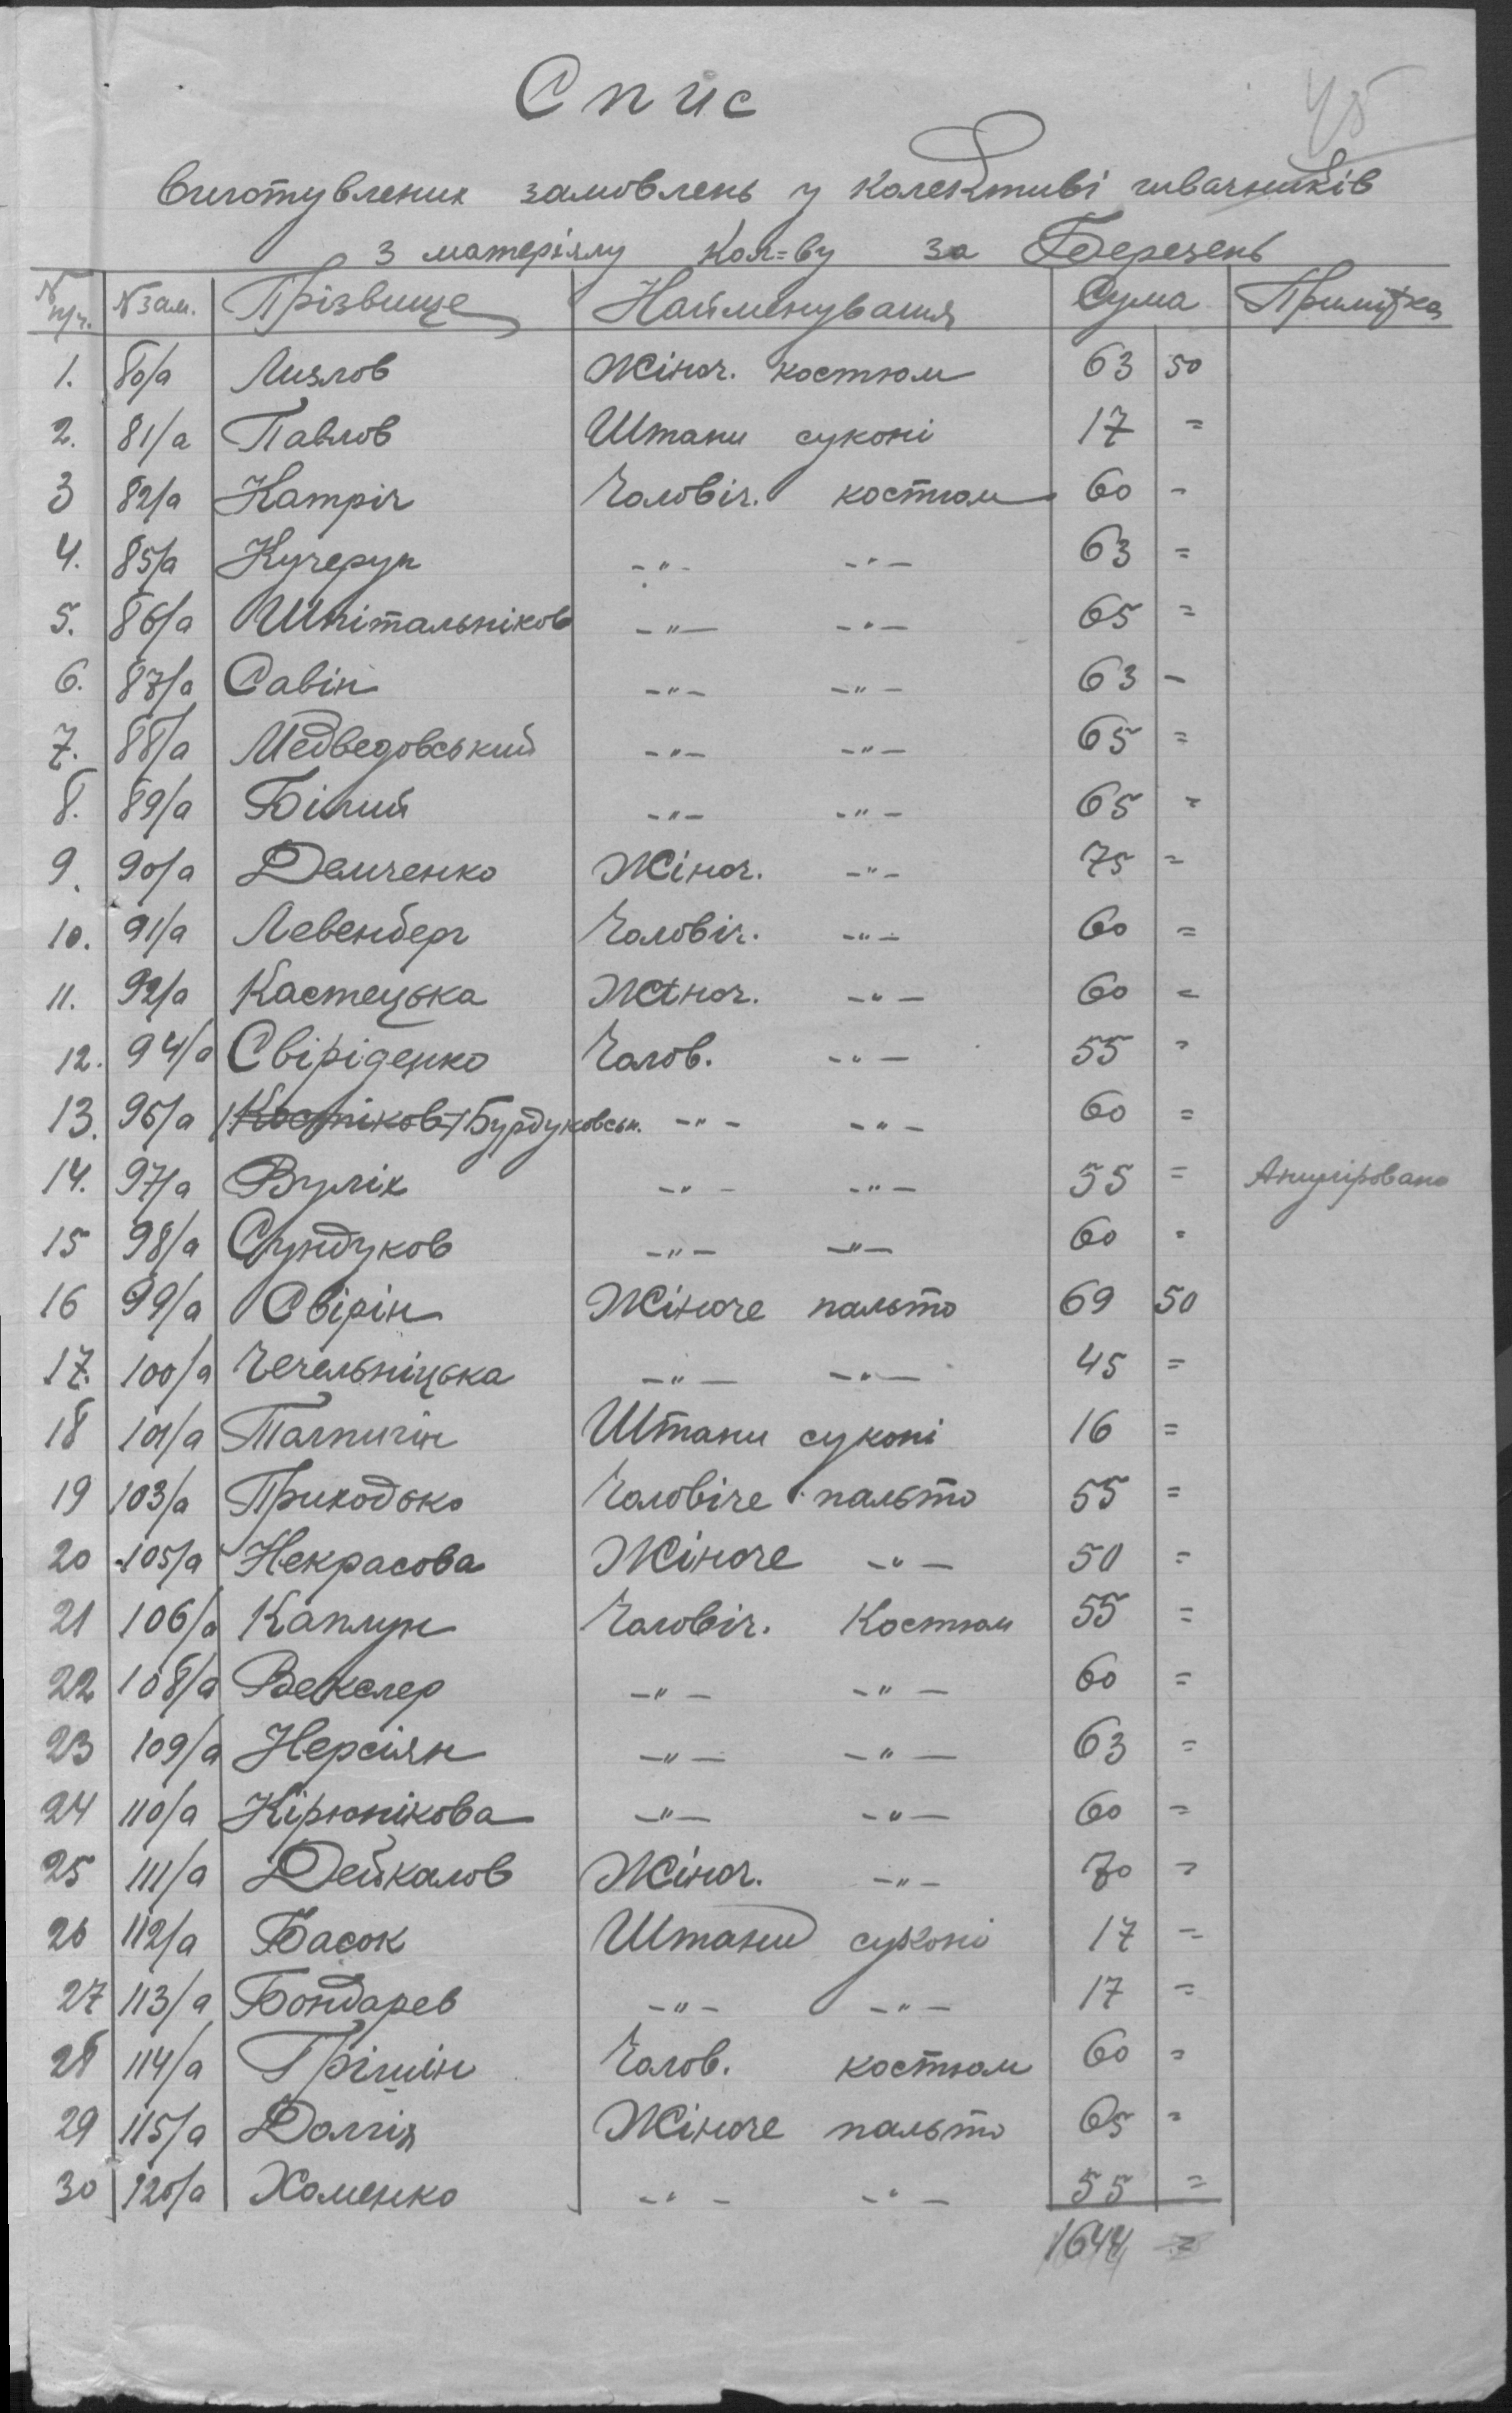 Спис
45
виготувлених замовлень у колективі швачників
з матеріялу кол=ву за Березень
№ п/ч. № зам. Прізвище Найменування Сума Примітка
1. 80/а Лизлов Жіноч. костюм 63 50
2. 81/а Павлов Штани суконі 17 =
3 82/а Катріч Чоловіч. костюм 60 -
4. 85/а Кучерук -"- -"- 63 =
5. 86/а Шпітальніков -"- -"- 65 =
6. 87/а Савін -"- -"- 63 -
7. 88/а Медведовський -"- -"- 65 =
8. 89/а Білий -"- -"- 65 =
9. 90/а Демченко Жіноч. -"- 75 =
10. 91/а Левенберг Чоловіч. -"- 60 =
11. 92/а Кастецька Жіноч. -"- 60 =
12. 94/а Свіріденко Чолов. -"- 55 =
13. 95/а /Костіков/ Бурдуковськ. -"- -"- 60 =
14. 97/а Вулік -"- -"- 55 = Ануліровано
15 98/а Сундуков -"- -"- 60 =
16 99/а Свірін Жіноче пальто 69 50
17. 100/а Чечельніцька -"- -"- 45 =
18 101/а Талпигін Штани суконі 16 =
19 103/а Приходько Чоловіче пальто 55 =
20 105/а Некрасова Жіноче -"- 50 =
21 106/а Каплун Чоловіч. Костюм 55 =
22 108/а Векслер -"- -"- 60 =
23 109/а Нерсіян -"- -"- 63 =
24 110/а Кірюнікова -"- -"- 60 =
25 111/а Дейкалов Жіноч. -"- 70 =
26 112/а Басок Штани суконі 17 =
27 113/а Бондарев -"- -"- 17 =
28 114/а Грішін Чолов. костюм 60 =
29 115/а Долгія Жіноче пальто 65 =
30 120/а Хоменко -"- -"- 55 =
1644 =